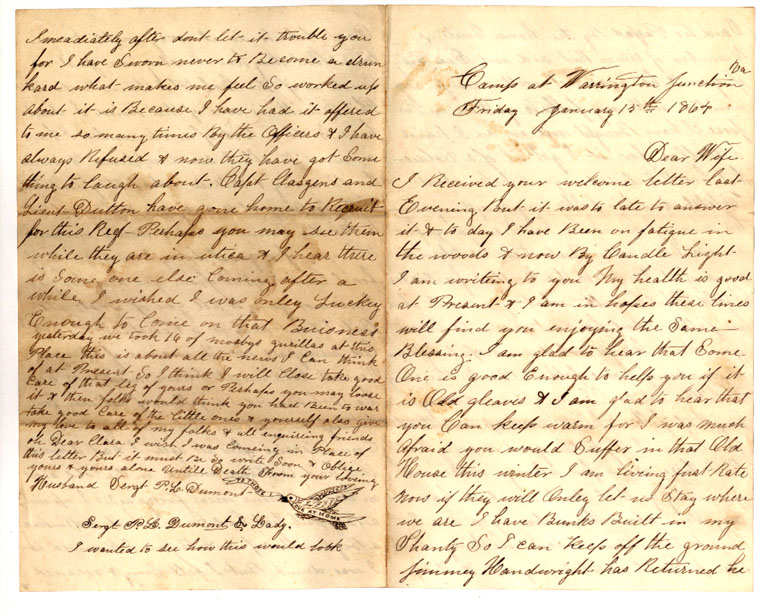 Camp at Warrington Junction Va
Friday January 15th 1864
Dear Wife
I Received your welcome letter last
Evening But it was to late to answer
it & to day I have Been on fatigue in
the woods & now By Candle Light
I am writeing to you My health is good
at Present & I am in hopes these lines
will find you enjoying the Same
Blessing. I am glad to hear that Some
One is good Enough to help you if it
is Old gleaves & I am glad to hear that
you Can keep warm for I was much
afraid you would Suffer in that Old
House this winter I am living first Rate
Now if they will Onley let us Stay where
we are I have Bunks Built in my
Shanty So I can keep off the ground
Jimmey Handwright has Returned he
Imeadiately after dont let it trouble you
for I have Sworn never to Become a drun
kard what makes me feel So worked up
about it is Because I have had it offered
to me so many times By the Officers & I have
always Refused & now they have got Some
thing to laugh about. Capt Clasgens and
Lieut Dutton have gone home to Recruit
for this Reg Perhaps you may see them
while they are in utica & I hear there
is Some one else Coming after a
while I wished I was onley Luckey
Enough to Come on that Buisness
yesterday we took 16 of mosbys gurillas at this
Place this is about all the news I Can think
of at Present So I think I will Close take good
Care of that leg of yours or Perhaps you may loose
it & then folks would think you had Been to war
take good Care of the little ones & yourself also give
my love to all of my folks & all enquireing friends
oh Dear Clara I wish I was Comeing in Place of
this letter But it must Be So write Soon & Oblige
yours & yours alone Untill Death From your loving
Husband Sergt P.L. Dumont
AT HOME
Sergt P.L. Dumont & Lady.
I wanted to see how this would look